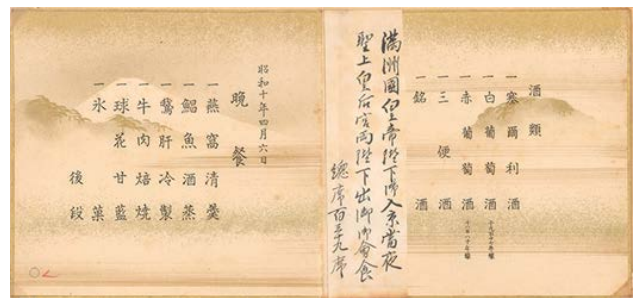 酒類
一塞爾利酒
一白葡萄酒
一赤葡萄酒
一三鞭酒
一銘酒
満洲國皇帝陛下御入京當夜
聖上皇后宮両陛下出御御會食
總席百三十九席
昭和十年四月六日
晩餐
一燕窩清羹
一鯧魚酒蒸
一鵞肝冷製
一牛肉焙燒
一球花甘藍
一氷菓
後段